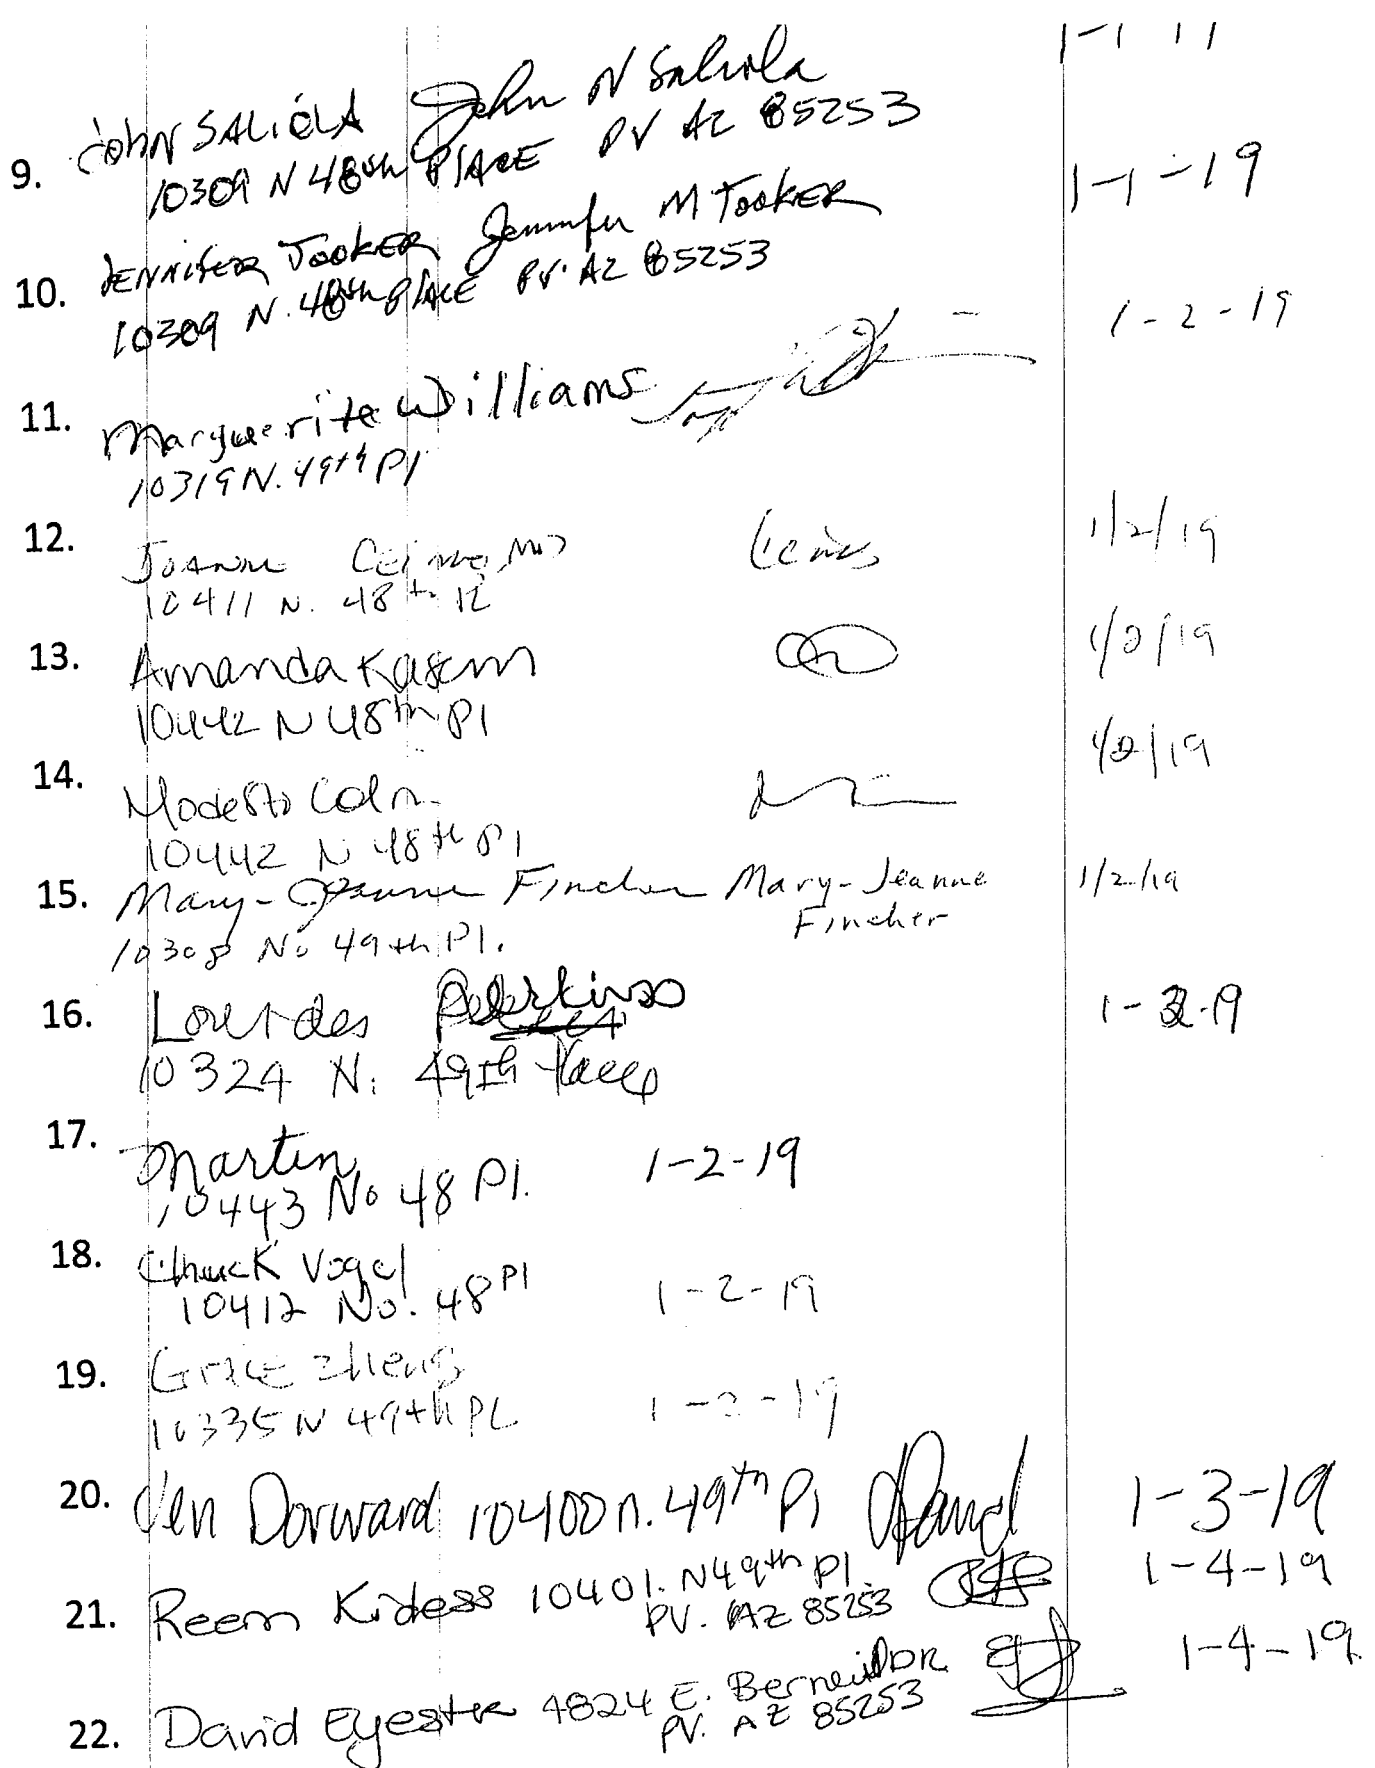 9. John SALIOLA John N Saliola
10309 N 48th PLACE PV AZ 85253
1-1-19
10. JENNIFER TOOKER Jennifer M TOOKER
10309 N. 48th PLACE PV. AZ 85253
1-2-19
11. Marguerite Williams
10319 N. 49th Pl
12. Joanne MD 1/2/19
10411 N. 48th Pl
13. Amanda Kasem 1/2/19
10442 N 48th Pl
14. Modesto Colon 1/2/19
10442 N 48th Pl
15. Mary-Jeanne Fincher Mary-Jeanne 1/2/19
Fincher
10308 No 49th Pl.
16. Lourdes 1-2-19
10324 N. 49th Place
17. Martin 1-2-19
10443 No 48 Pl.
18. Chuck Vogel
10412 No. 48 Pl 1-2-19
19. Grace Zheng
10335 N 49th PL 1-2-19
20. Jen Dorward 10400 n. 49th Pl 1-3-19
21. Reem Kidess 10401. N 49th Pl. 1-4-19
PV. AZ 85253
22. David Eyester 4824 E. Berneil DR 1-4-19.
PV. AZ 85253